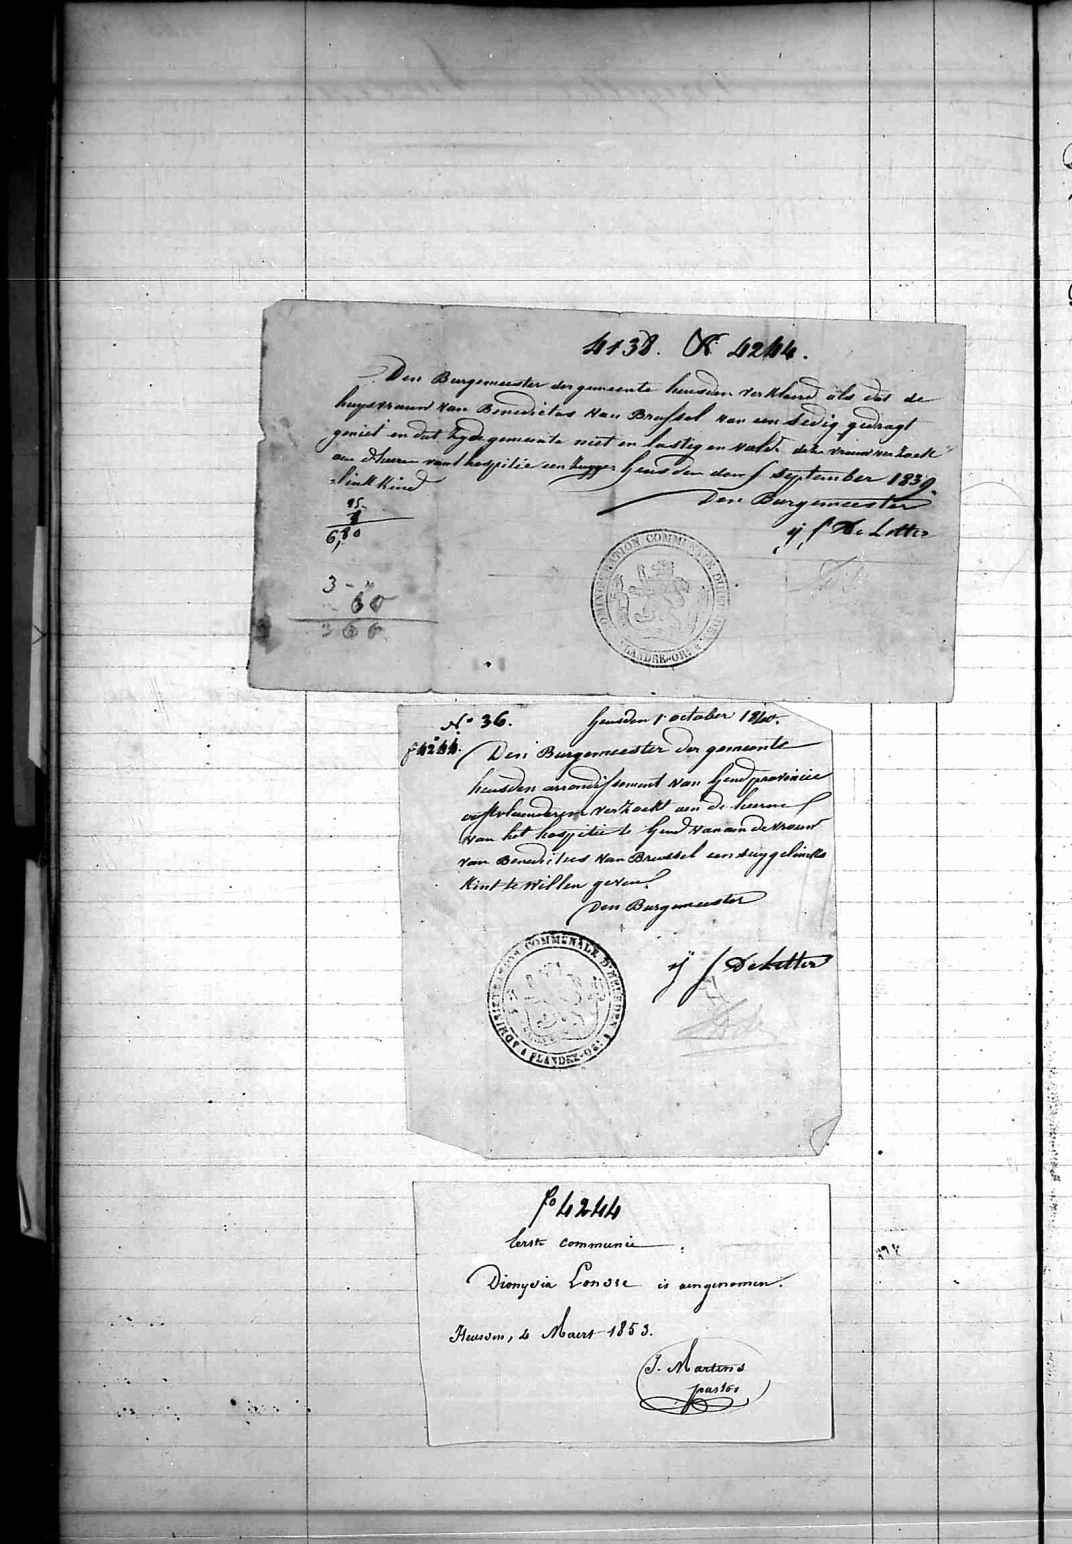 4138. & 4244.
Den Burgemeester der gemeente heusden verklaerd als dat de
huysvrauw van Benedictus Van Brussel van een sedig gedragt
geniet en dat zy de gemeente niet en lastig en valt deze vrauw verzoek
aen d'heeren vant hospitie een zuygge Heusden den september 1839.
-link kind
Den Burgemeester
95
6,80
y f De Letter
3 -
60
366
ADMINISTRATION COMMUNALE D'HEUSDEN
FLANDRE-OR:
No 36. heusden 1 october 1840.
fo 4244. Den Burgemeester der gemeente
heusden arrondissement van Gend provincie
oostvlaenderen verzoekt aen de heeren
van het hospitie te Gend van aen de vrouw
van Benedictus Van Brussel een suygelinks
kint te willen geven.
Den Burgemeester
y f De Letter
ADMINISTRATION COMMUNALE D'HEUSDEN
FLANDRE-OR:
fo 4244
Eerste communie
Dionysia Lonvre is aengenomen.
Heusden, 4 Maert 1853.
J. Martens
pastor